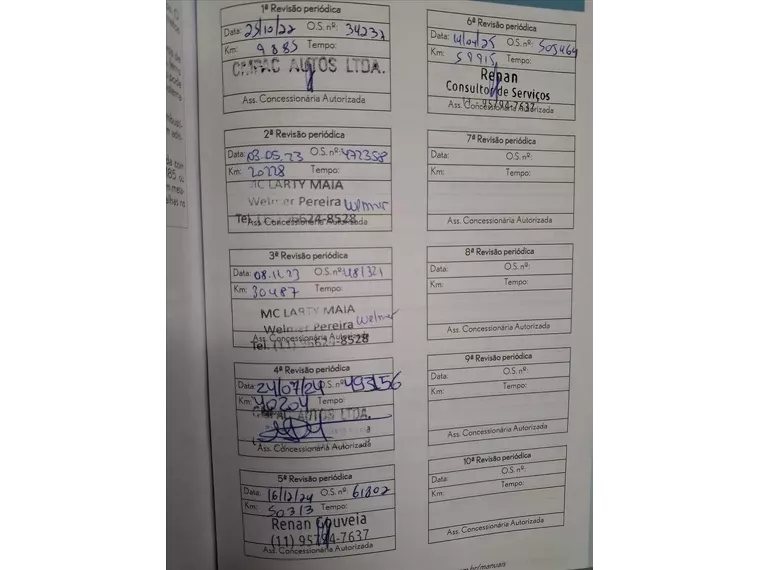 1ª Revisão periódica
Data: 25/10/22 O.S. nº: 34237
Km: 9885 Tempo:
CMPAC AUTOS LTDA.
Ass. Concessionária Autorizada
2ª Revisão periódica
Data: 03.05.23 O.S. nº: 472358
Km: 20228 Tempo:
MC LARTY MAIA
Welmer Pereira Welmer
Ass. Concessionária Autorizada
3ª Revisão periódica
Data: 08.11.23 O.S. nº: 481321
Km: 30487 Tempo:
MC LARTY MAIA
Welmer Pereira Welmer
Ass. Concessionária Autorizada
Tel. (11) 95624-8528
4ª Revisão periódica
Data: 24/07/24 O.S. nº: 493156
Km: 40204 Tempo:
CMPAC AUTOS LTDA.
Ass. Concessionária Autorizada
5ª Revisão periódica
Data: 16/12/24 O.S. nº: 61802
Km: 50313 Tempo:
Renan Gouveia
(11) 95794-7637
Ass. Concessionária Autorizada
6ª Revisão periódica
Data: O.S. nº: 505464
Km: 59915 Tempo:
Renan
Consultor de Serviços
95794-7637
Ass. Concessionária Autorizada
7ª Revisão periódica
Data: O.S. nº:
Km: Tempo:
Ass. Concessionária Autorizada
8ª Revisão periódica
Data: O.S. nº:
Km: Tempo:
Ass. Concessionária Autorizada
9ª Revisão periódica
Data: O.S. nº:
Km: Tempo:
Ass. Concessionária Autorizada
10ª Revisão periódica
Data: O.S. nº:
Km: Tempo:
Ass. Concessionária Autorizada